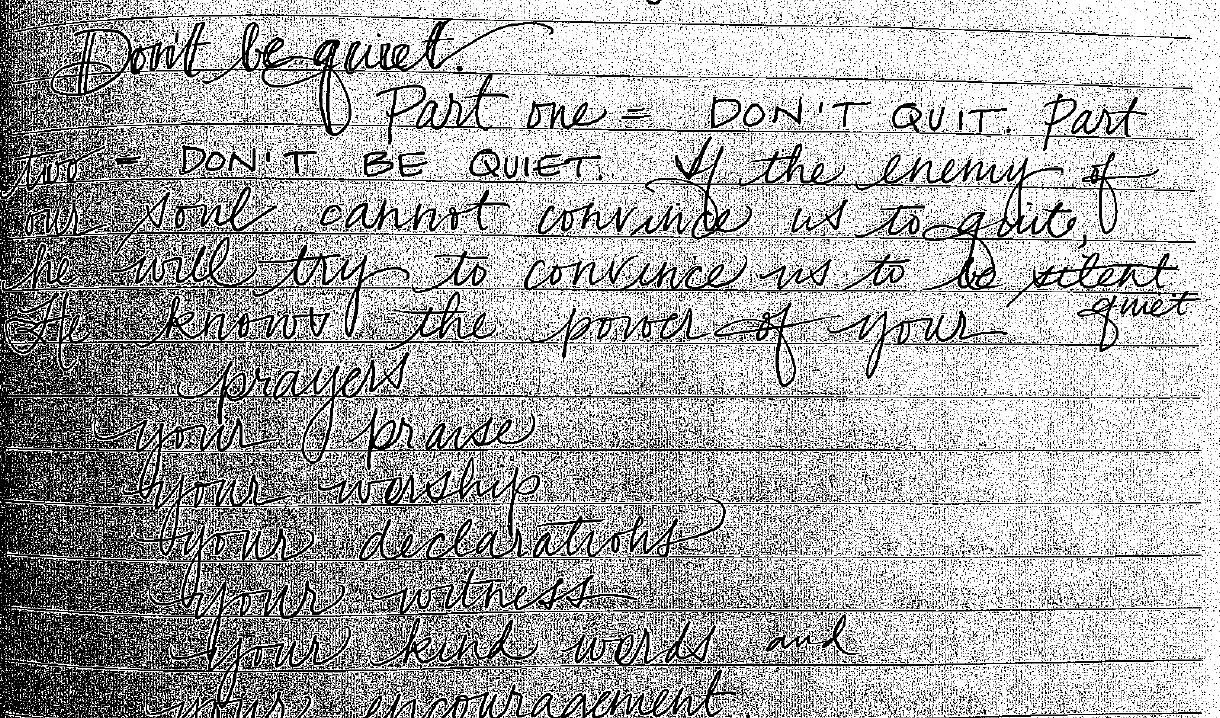 Don't be quiet.
Part one = DON'T QUIT. Part
two = DON'T BE QUIET. If the enemy of
our soul cannot convince us to quite,
he will try to convince us to be silent
quiet
He knows the power of your
prayers
your praise
your worship
your declarations
your witness
your kind words and
your encouragement.